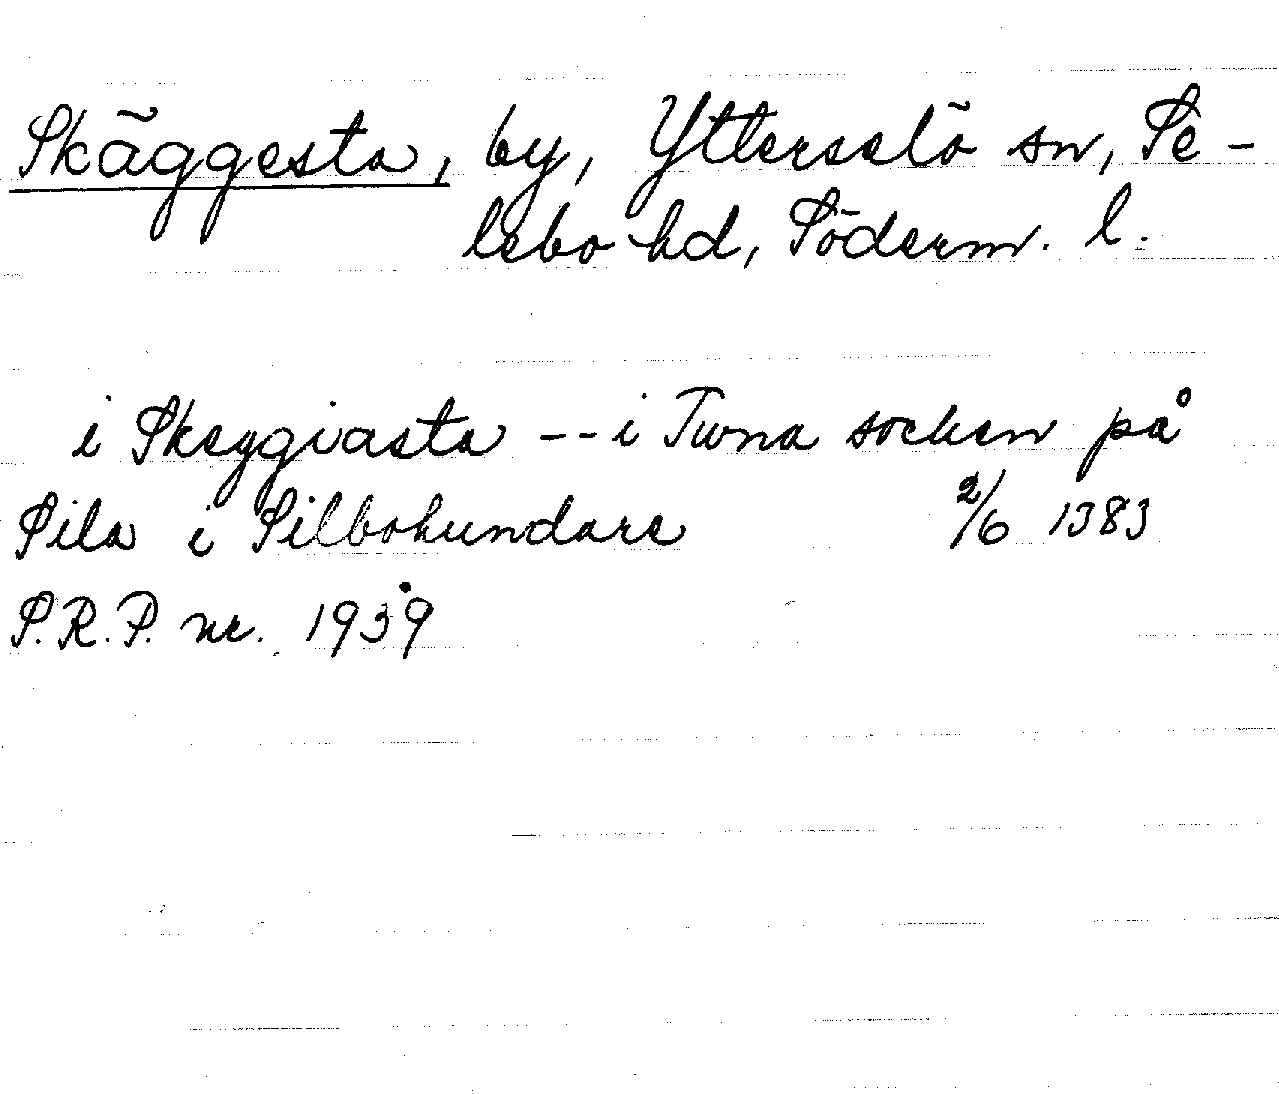 Skäggesta, by, Ytterselö sn, Se-
lebo hd, Söderm. l.
i Skeggiasta -- i Tuna socken på
Sila i Silbohundare 2/6 1383
S.R.P. nr. 1939